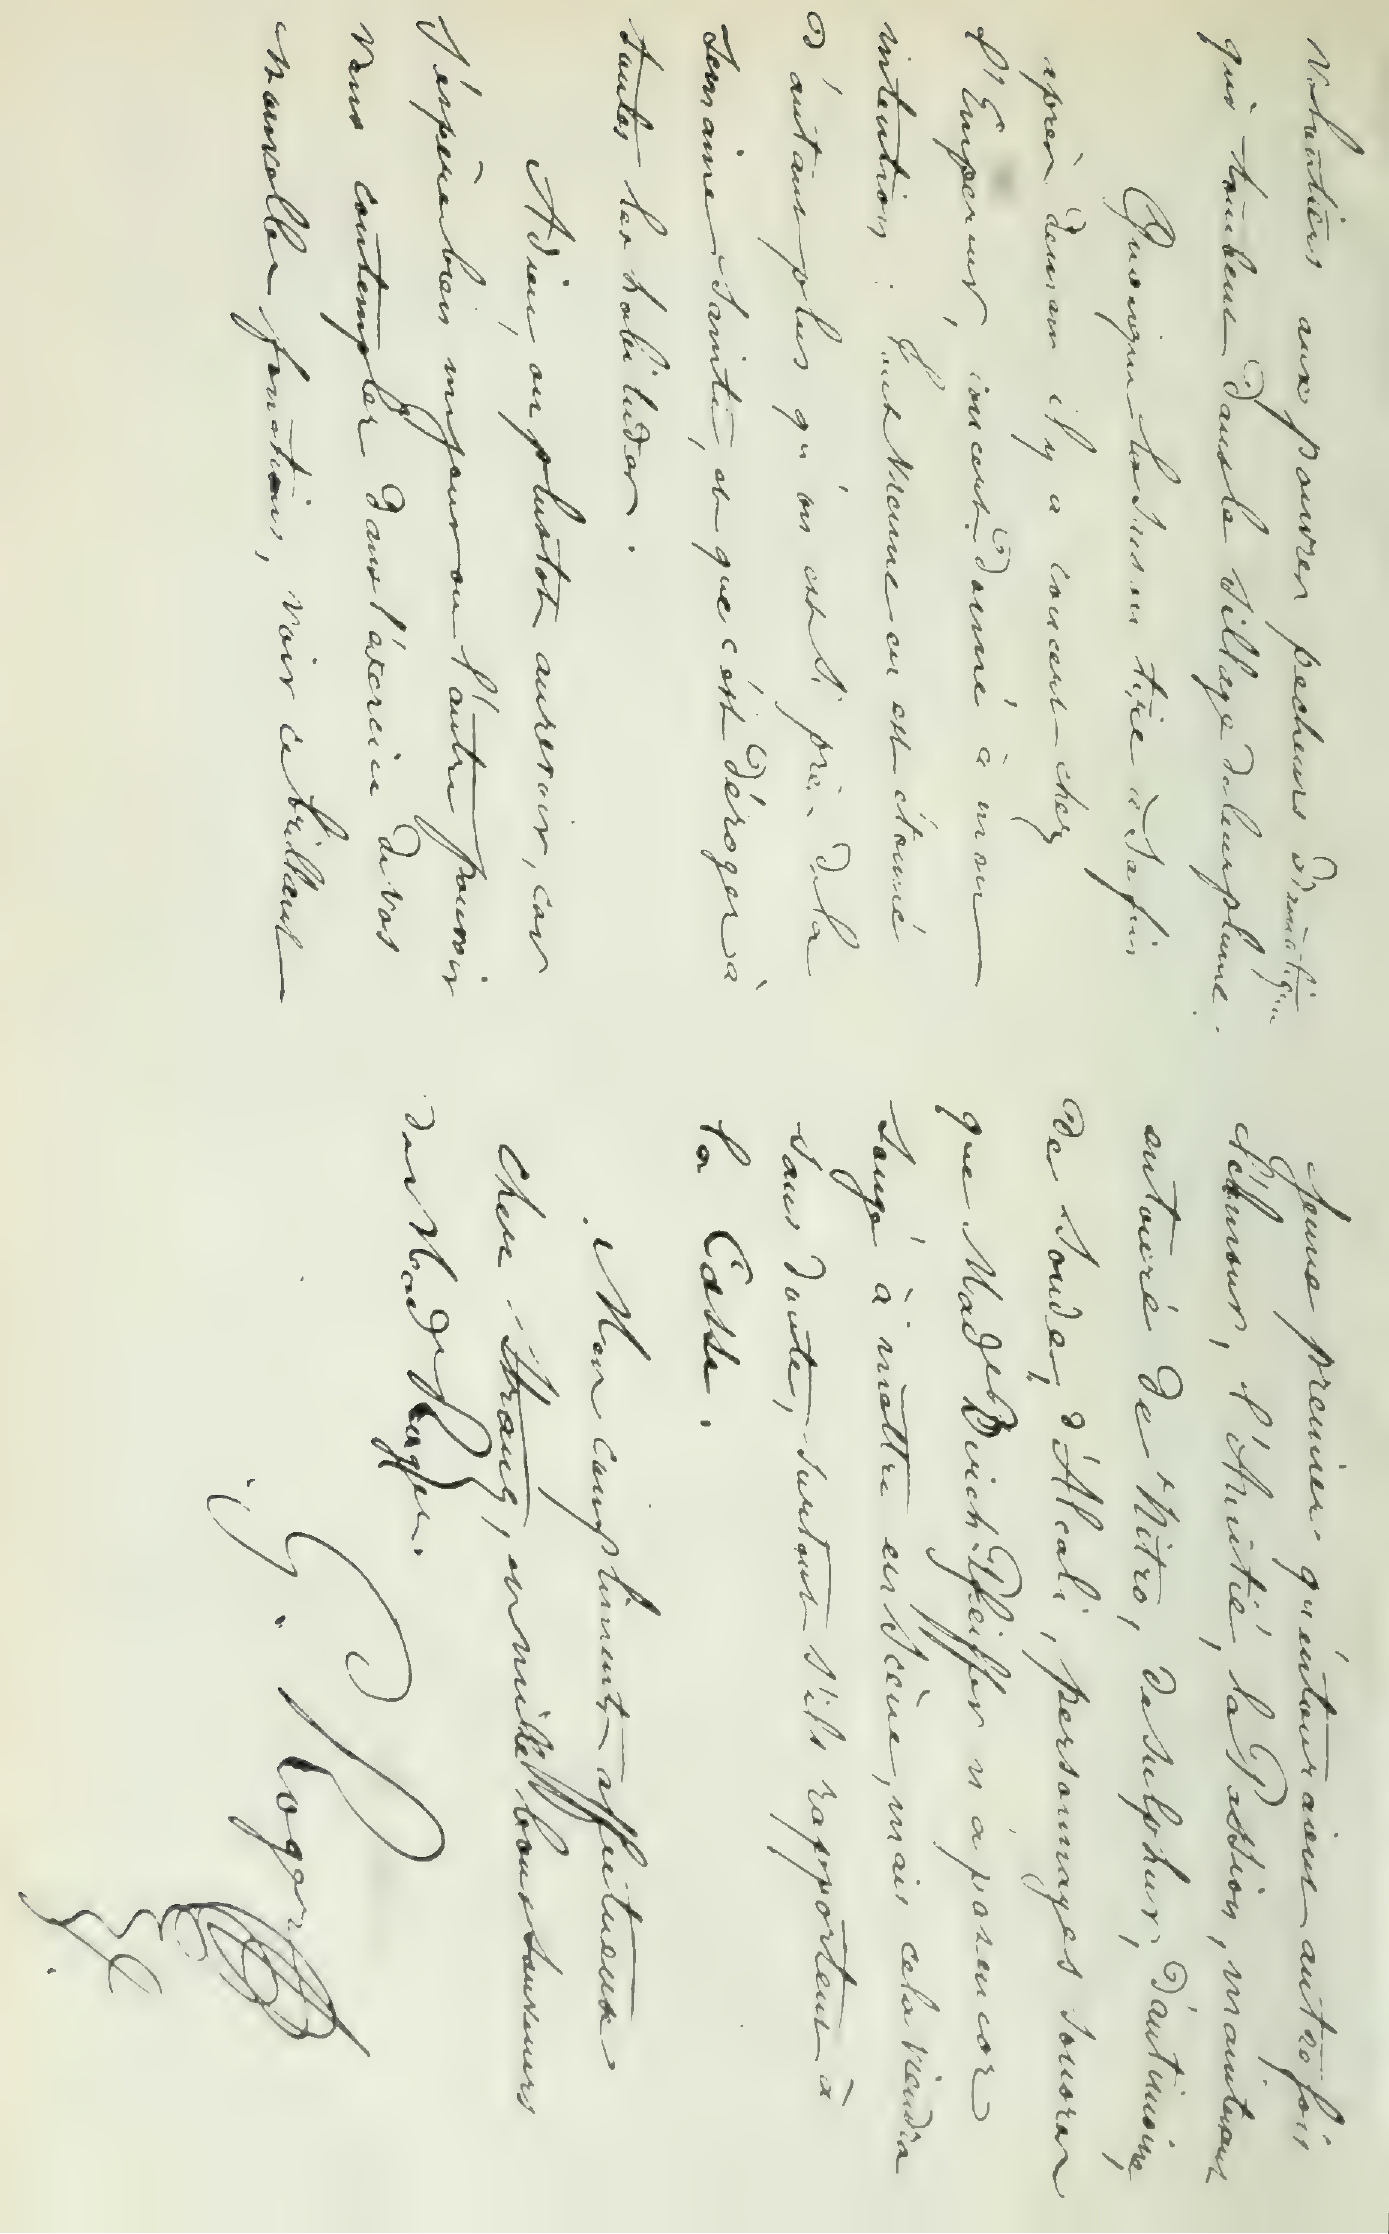 volontiers aux pauvres pecheurs dramatiques
qui tombent dans le sillage de leur plume.
Quoique la saison tire à sa fin
après demain il y a concert chez
l'Empereur, concert donné à mon
intention: tout Vienne en est étonné
d'autant plus qu'on est si près de la
semaine sainte, et que c'est déroger à
toutes les habitudes.
Adieu, ou plustot au revoir, car
j'espère bien un jour ou l'autre pouvoir
vous contempler dans l'exercice de vos
nouvelles fonctions, voir ce brillant
jeune premier qu'entouraient autrefois
l'Amour, l'Amitié, la Passion, maintenant
entouré de Nitro, de sulphur, d'antimoine,
de soude, d'Alcali, personnages sonores
que Mad.e Birch-Pfeiffer n'a pas encor
songé à mettre en scène, mais cela viendra
sans doute, surtout s'ils rapportent à
la Casse.
Mon compliment affectueux
cher Strang, et mille bons souvenirs
de Made Roger.
G. Roger